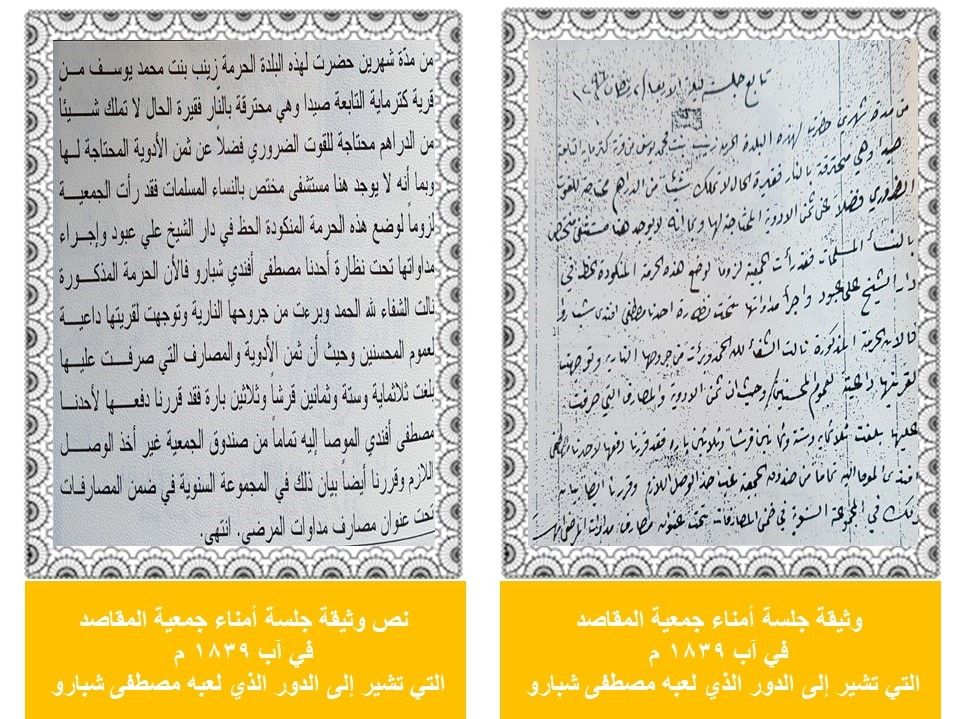 تابع جلسة ليلة الاربعاء رمضان
من مدة شهرين حضرت لهذه البلدة الحرمة زينب بنت محمد يوسف من قرية كترمايه التابعة
صيدا وهي محترقة بالنار فقيرة الحال لا تملك شيئا من الدراهم محتاجة للقوت
الضروري فضلاً عن ثمن الادوية المحتاجة لها وبما انه لا يوجد هنا مستشفى مختص
بالنساء المسلمات فقد رأت الجمعية لزوما لوضع هذه الحرمة المنكودة الحظ في
دار الشيخ علي عبود واجراء مداواتها تحت نظارة احدنا مصطفى افندي شبارو
فالان الحرمة المذكورة نالت الشفاء لله الحمد وبرئت من جروحها النارية وتوجهت
لقريتها داعية لعموم المحسنين وحيث ان ثمن الادوية والمصارف التي صرفت
عليها بلغت ثلاثمايه وستة وثمانين قرشا وثلاثين باره فقد قررنا دفعها لاحدنا مصطفى
افندي الموما اليه تماما من صندوق الجمعية غب اخذ الوصل اللازم وقررنا ايضا بيان
ذلك في المجموعة السنوية في ضمن المصارفات تحت عنوان مصارف مداوات المرضى انتهى
وثيقة جلسة أمناء جمعية المقاصد
في آب ١٨٣٩ م
التي تشير إلى الدور الذي لعبه مصطفى شبارو
من مدّة شهرين حضرت لهذه البلدة الحرمة زينب بنت محمد يوسف من
قرية كترماية التابعة صيدا وهي محترقة بالنّار فقيرة الحال لا تملك شيئاً
من الدراهم محتاجة للقوت الضروري فضلاً عن ثمن الأدوية المحتاجة لها
وبما أنه لا يوجد هنا مستشفى مختص بالنساء المسلمات فقد رأت الجمعية
لزوماً لوضع هذه الحرمة المنكودة الحظ في دار الشيخ علي عبود وإجراء
مداواتها تحت نظارة أحدنا مصطفى أفندي شبارو فالأن الحرمة المذكورة
نالت الشفاء لله الحمد وبرءت من جروحها النارية وتوجهت لقريتها داعية
لعموم المحسنين وحيث أن ثمن الأدوية والمصارف التي صرفت عليها
بلغت ثلاثماية وستة وثمانين قرشاً وثلاثين بارة فقد قررنا دفعها لأحدنا
مصطفى أفندي الموصا إليه تماماً من صندوق الجمعية غير أخذ الوصل
اللازم وقررنا أيضاً بيان ذلك في المجموعة السنوية في ضمن المصارفات
تحت عنوان مصارف مداوات المرضى. انتهى.
نص وثيقة جلسة أمناء جمعية المقاصد
في آب ١٨٣٩ م
التي تشير إلى الدور الذي لعبه مصطفى شبارو